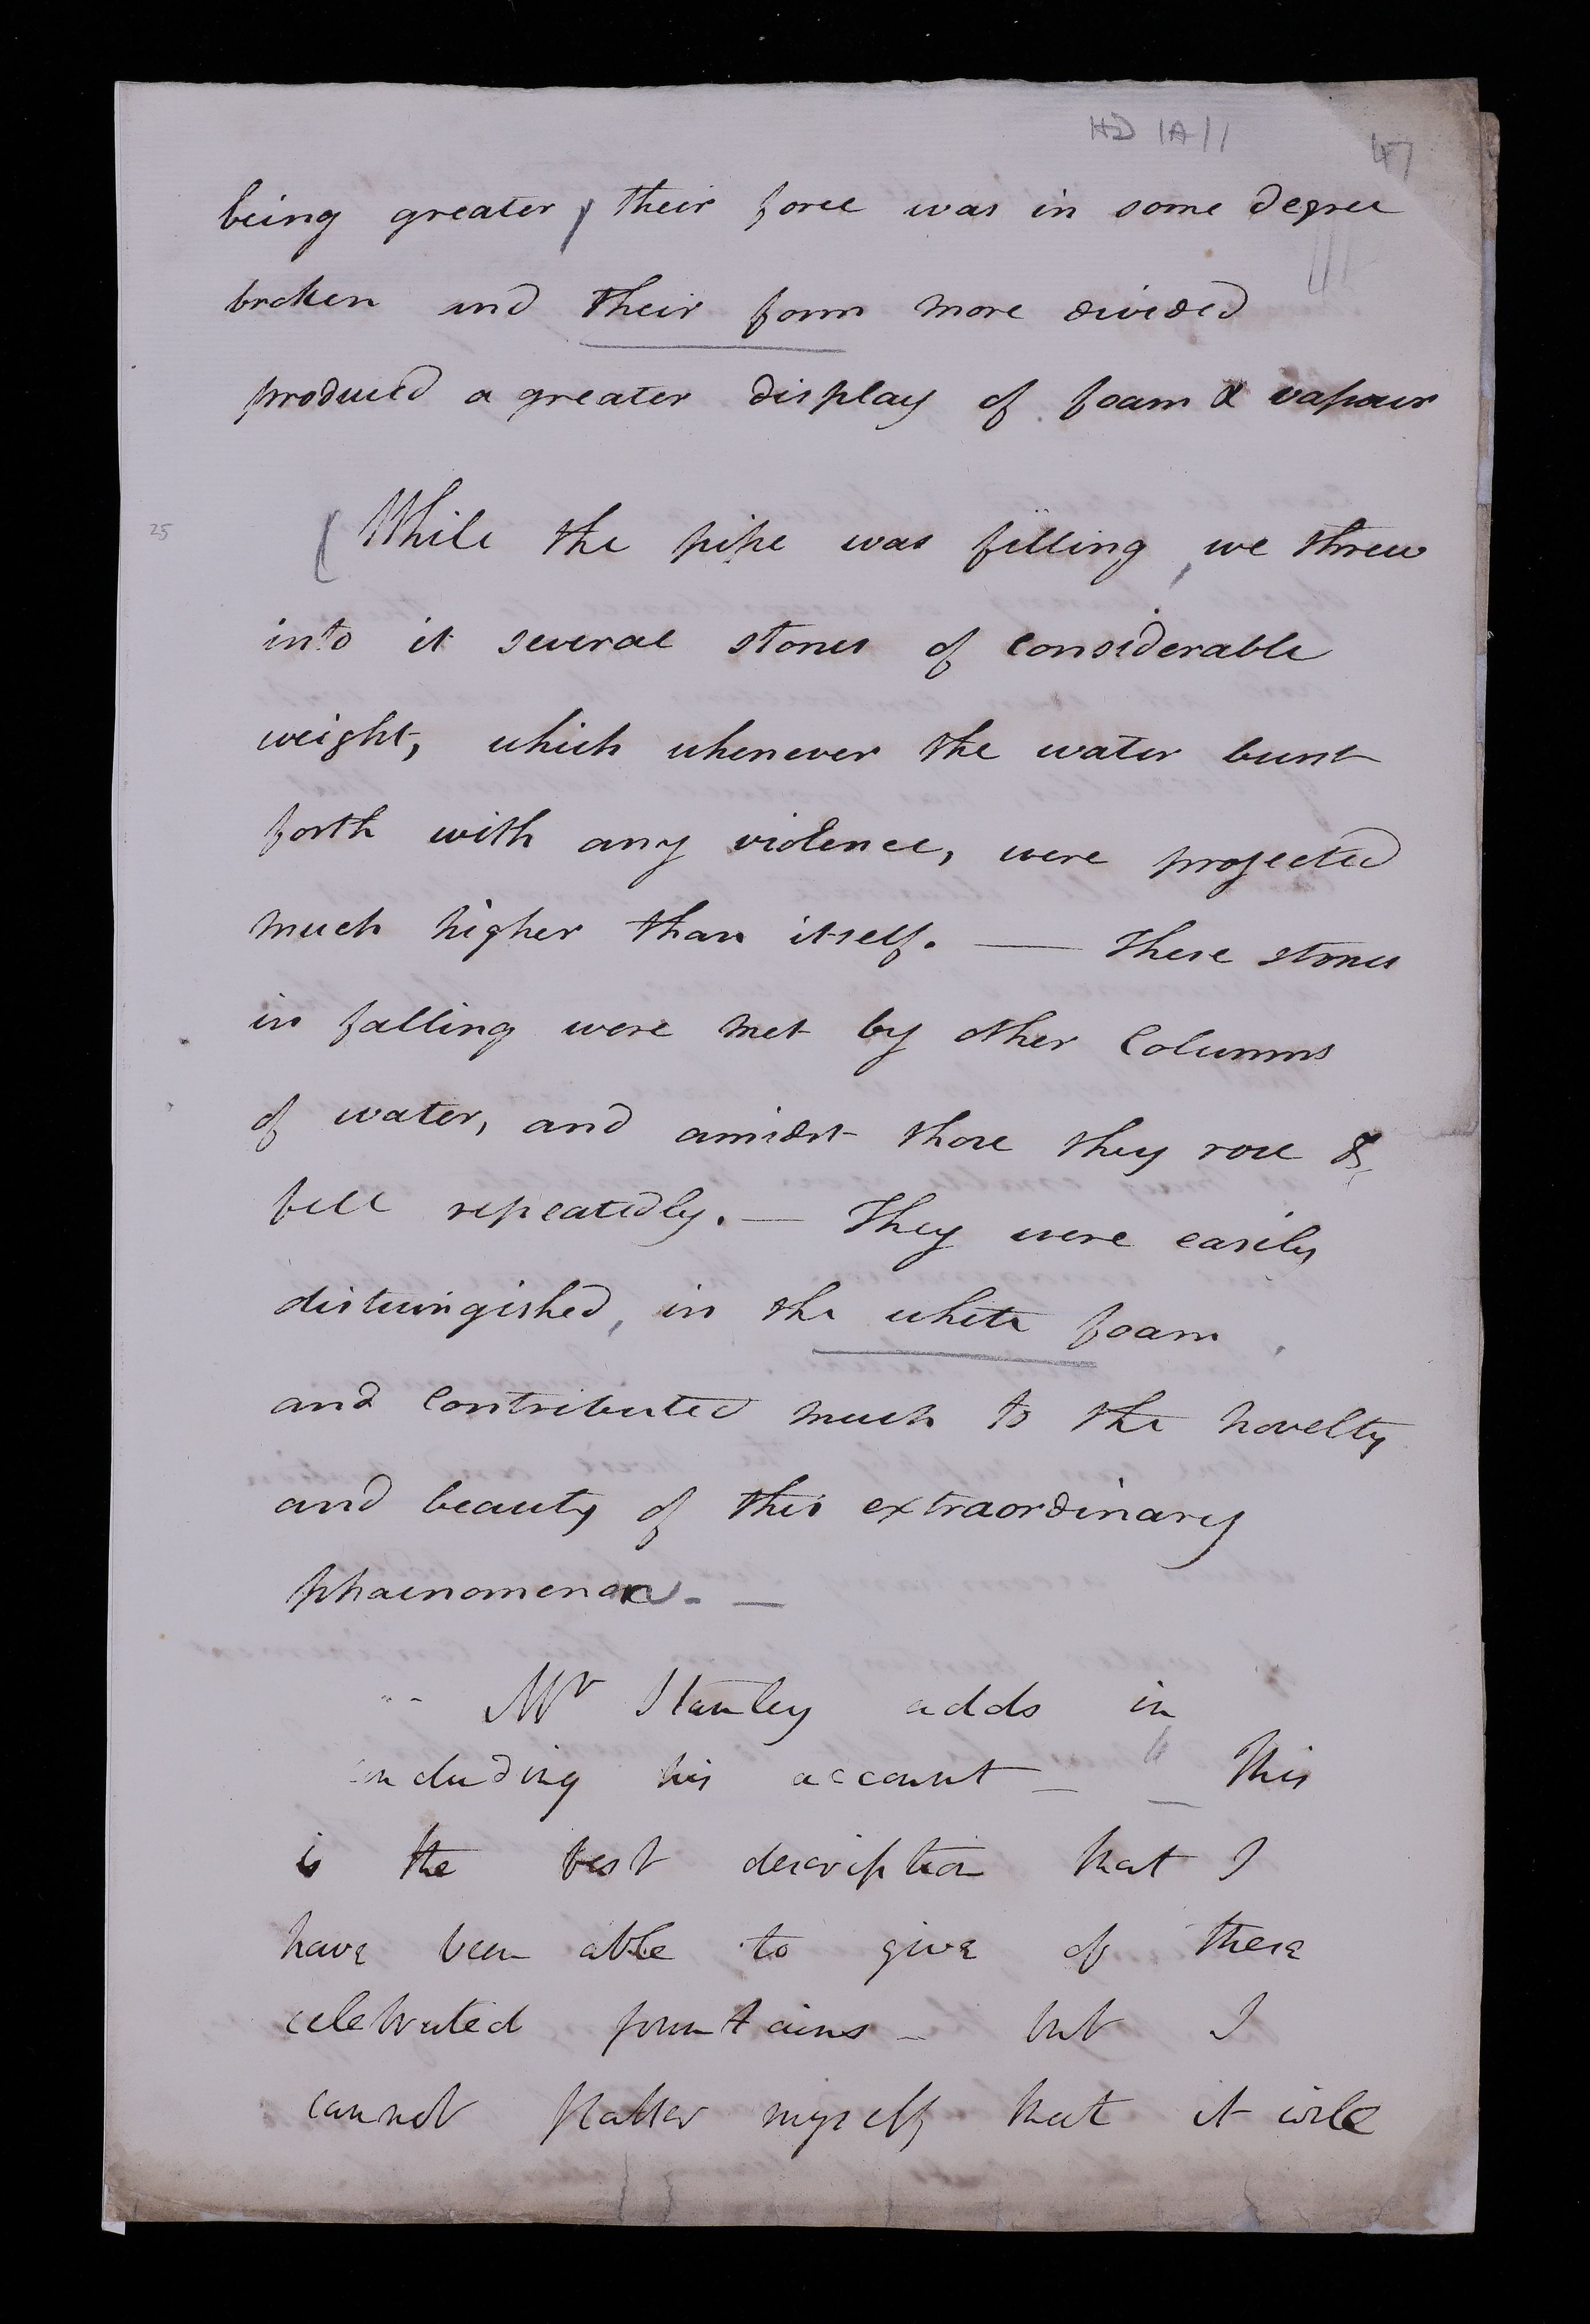 HD 1A/1
47
being greater, their force was in some degree
broken and their form more divided
produced a greater display of foam & vapour
25
(While the pipe was filling, we threw
into it several stones of considerable
weight, which whenever the water burst
forth with any violence, were projected
much higher than itself. — These stones
in falling were met by other Columns
of water, and amidst those they rose &
fell repeatedly. — They were easily
distuingished, in the white foam,
and Contributed much to the novelty
and beauty of this extraordinary
phaenomenon. —
Mr Stanley adds in
concluding his account — " This
is the best description that I
have been able to give of these
celebrated fountains — but I
cannot flatter myself that it will